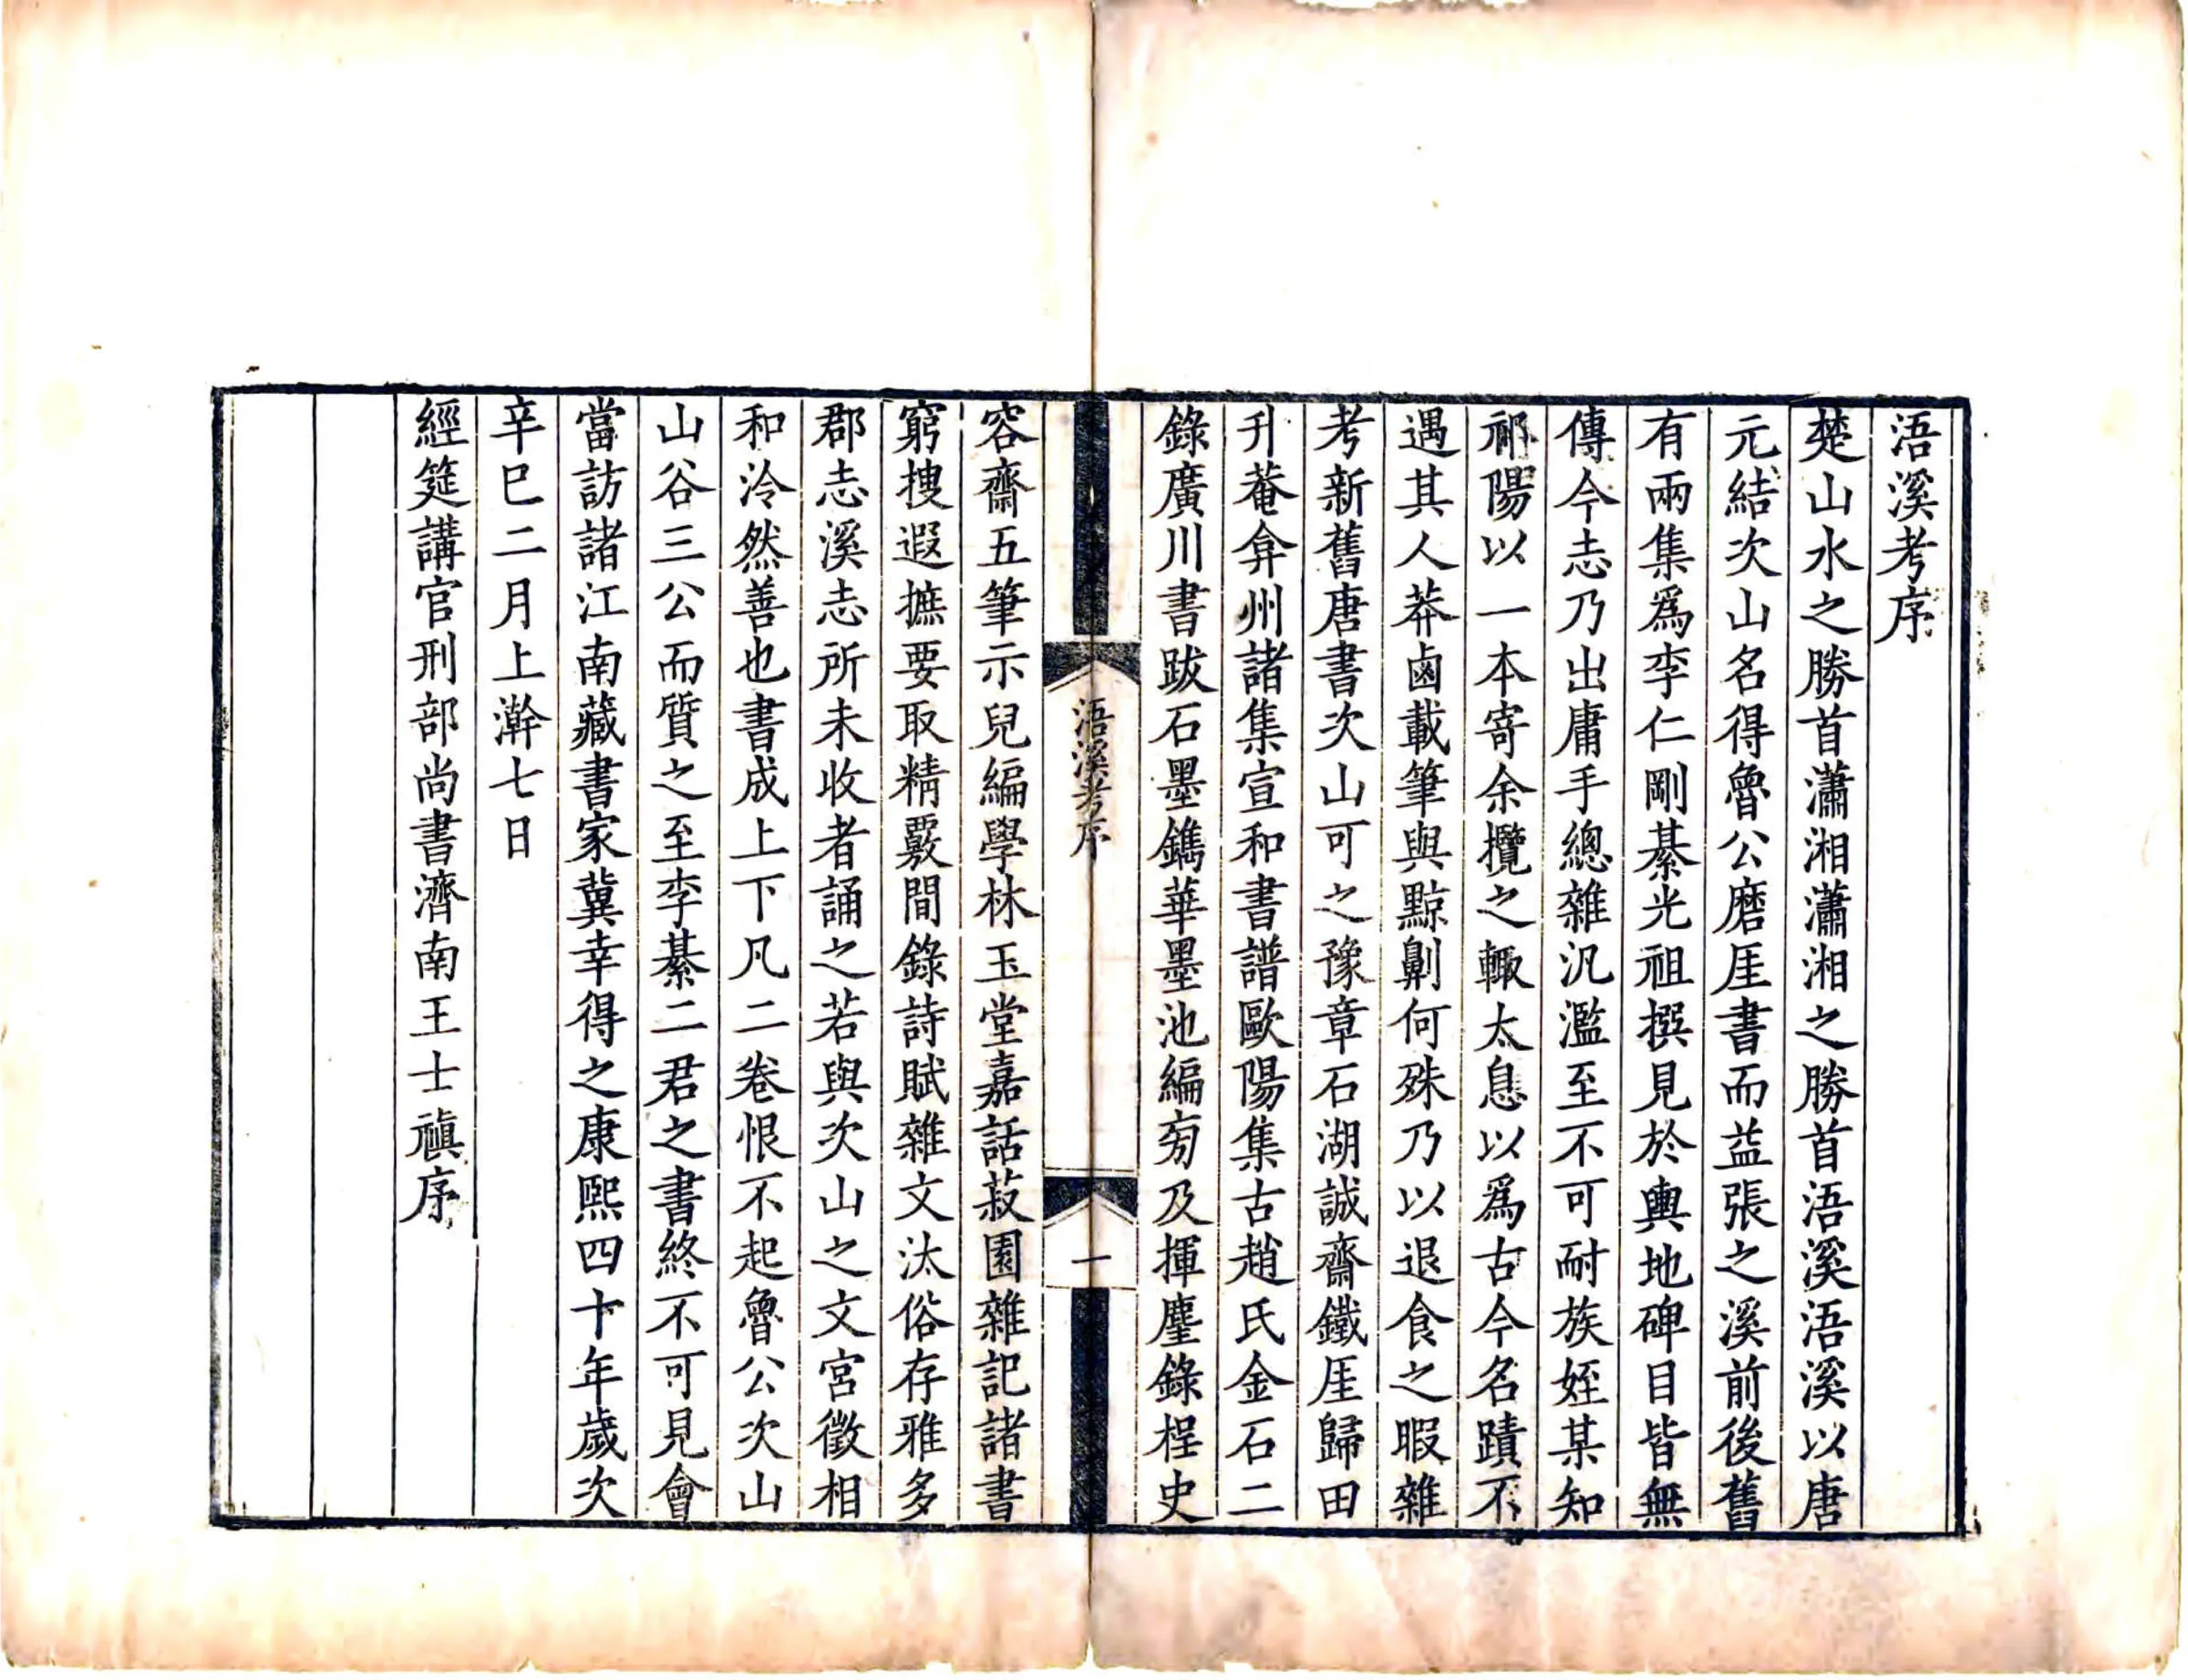 浯溪考序
楚山水之勝首瀟湘瀟湘之勝首浯溪浯溪以唐
元結次山名得魯公磨厓書而益張之溪前後舊
有兩集爲李仁剛綦光祖撰見於輿地碑目皆無
傳今志乃出庸手總雜汎濫至不可耐族姪某知
祁陽以一本寄余攬之輙太息以爲古今名蹟不
遇其人莽鹵載筆與黥劓何殊乃以退食之暇雜
考新舊唐書次山可之豫章石湖誠齋鐵厓歸田
升菴弇州諸集宣和書譜歐陽集古趙氏金石二
錄廣川書跋石墨鐫華墨池編旁及揮麈錄桯史
浯溪考序
一
容齋五筆示兒編學林玉堂嘉話菽園雜記諸書
窮搜遐摭要取精覈間錄詩賦雜文汰俗存雅多
郡志溪志所未收者誦之若與次山之文宮徵相
和泠然善也書成上下凡二卷恨不起魯公次山
山谷三公而質之至李綦二君之書終不可見會
當訪諸江南藏書家冀幸得之康熙四十年歲次
辛巳二月上澣七日
經筵講官刑部尚書濟南王士禛序